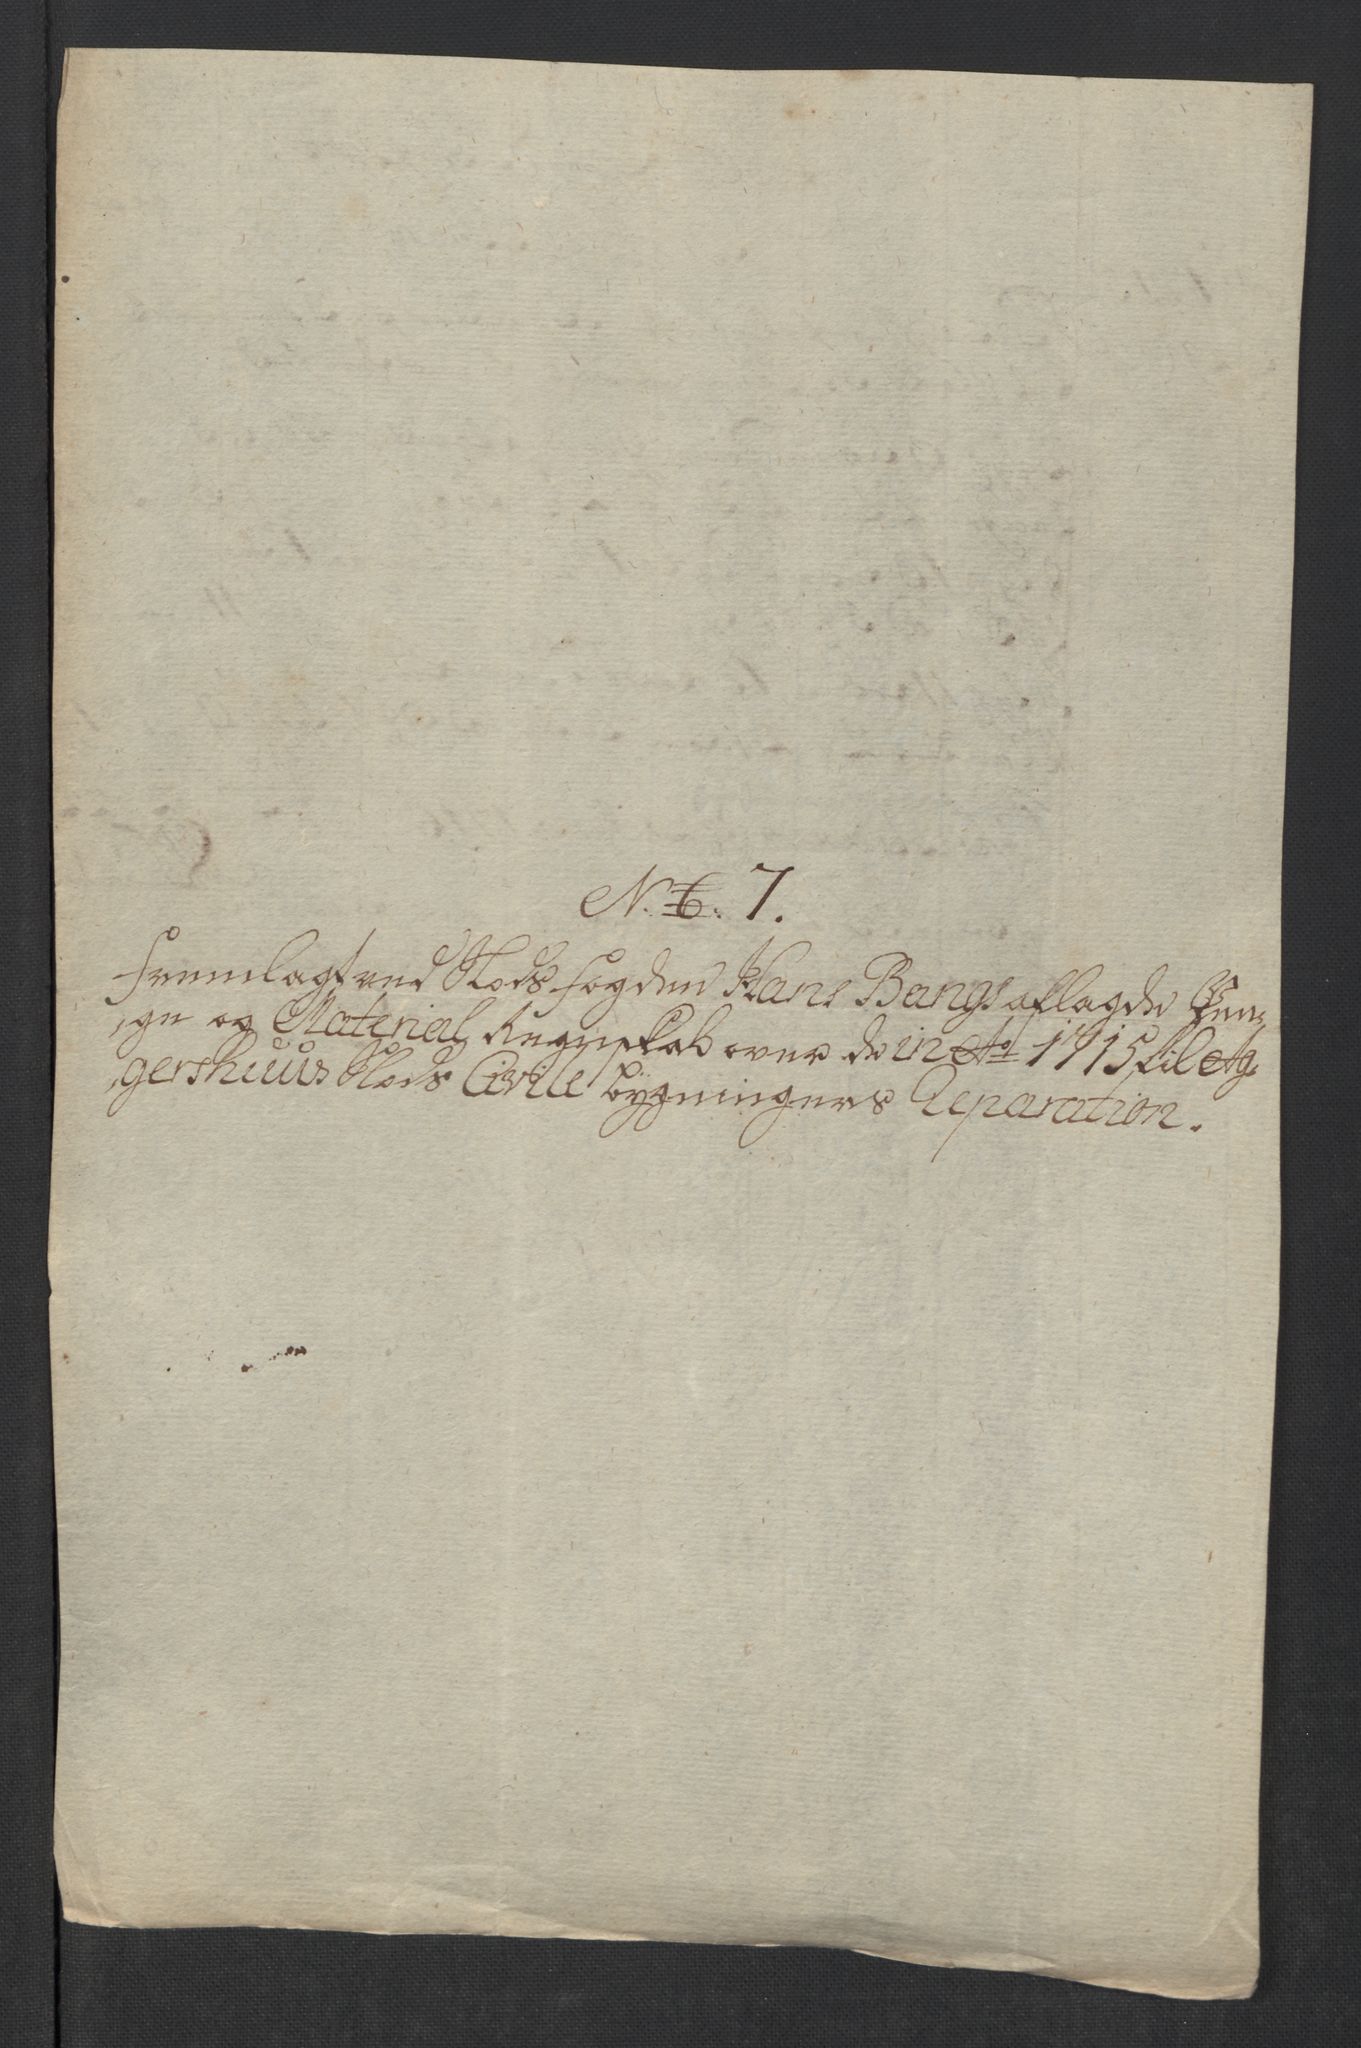 N. 6. 7.
Fremlagt ved Slodsfogden Hans Bangs aflagde Pen¬
,ge og Material Regnskab over de in Ao 1715 til Ag¬
,gershuus Slods Civile bygningers Reparation.